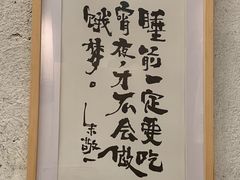 睡前一定要吃
宵夜,才不会做
饿梦。朱敬一